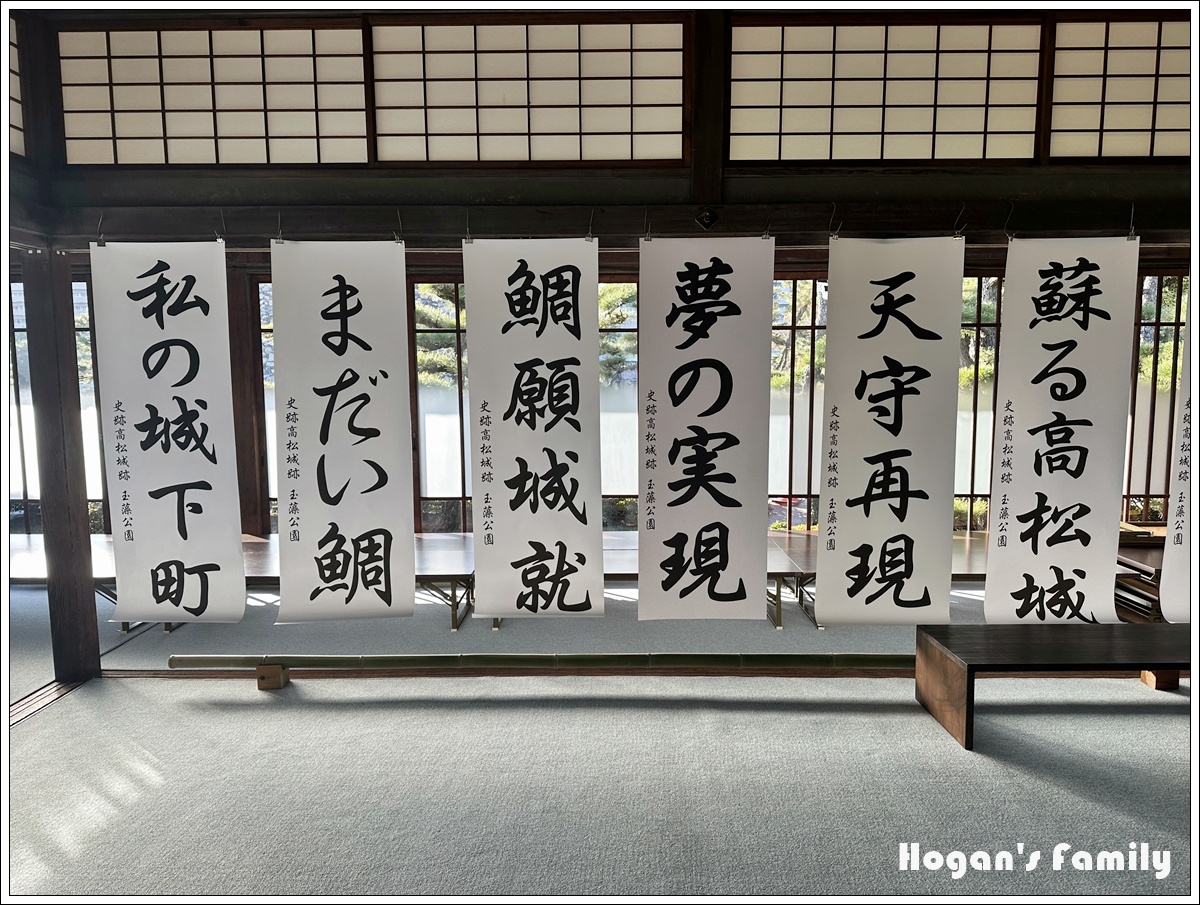 蘇る高松城
史跡高松城跡 玉藻公園
天守再現
史跡高松城跡 玉藻公園
夢の実現
史跡高松城跡 玉藻公園
鯛願城就
史跡高松城跡 玉藻公園
まだい鯛
史跡高松城跡 玉藻公園
私の城下町
史跡高松城跡 玉藻公園
Hogan's Family